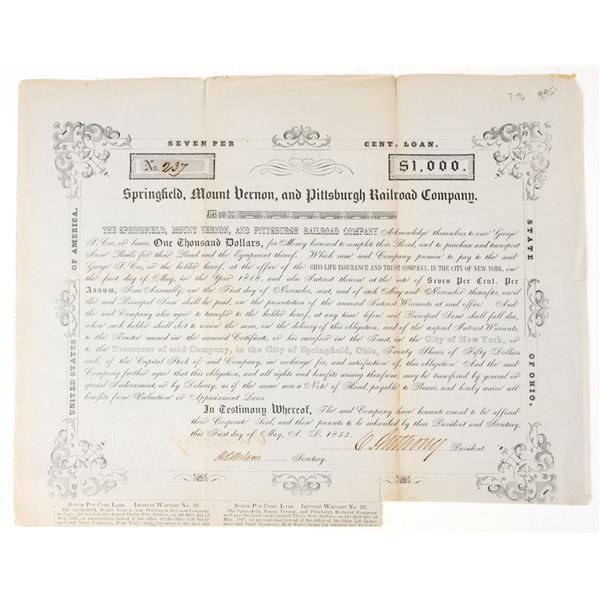 7% 995-
SEVEN PER CENT. LOAN.
No. 237
$1,000.
Springfield, Mount Vernon, and Pittsburgh Railroad Company.
UNITED STATES OF AMERICA.
STATE OF OHIO.
THE SPRINGFIELD, MOUNT VERNON, AND PITTSBURGH RAILROAD COMPANY Acknowledge themselves to owe George
S. Coe, or bearer, One Thousand Dollars, for Money borrowed to complete their Road, and to purchase and transport
Iron Rails for their Road and the Equipment thereof. Which sum said Company promise to pay to the said
George S. Coe, or the holder hereof, at the office of the OHIO LIFE INSURANCE AND TRUST COMPANY, IN THE CITY OF NEW YORK, on
the first day of May, in the Year 1868, and also Interest thereon at the rate of Seven Per Cent. Per
Annum, Semi Annually, on the First day of November, next, and of each May and November thereafter, until
the said Principal Sum shall be paid, on the presentation of the annexed Interest Warrants at said office. And
the said Company also agree to transfer to the holder hereof, at any time before said Principal Sum shall fall due,
when such holder shall elect to receive the same, on the delivery of this obligation, and of the unpaid Interest Warrants,
to the Trustee named in the annexed Certificate, or his successor in the Trust, in the City of New York, or
the Treasurer of said Company, in the City of Springfield, Ohio, Twenty Shares of Fifty Dollars
each, of the Capital Stock of said Company, in exchange for, and satisfaction of, this obligation. And the said
Company further agree that this obligation, and all rights and benefits arising therefrom, may be transferred by general or
special Indorsement, or by Delivery, as if the same were a Note of Hand, payable to Bearer, and hereby waive all
benefits from Valuation or Appraisement Laws.
In Testimony Whereof, The said Company have hereunto caused to be affixed
their Corporate Seal, and these presents to be subscribed by their President and Secretary,
this First day of May, A. D. 1853.
C Anthony President.
Secretary.
SEVEN PER CENT. LOAN. INTEREST WARRANT NO. 29.
The Springfield, Mount Vernon, and Pittsburgh Railroad Company
will pay the bond holder hereof Thirty Five Dollars, on the first day of
SEVEN PER CENT. LOAN. INTEREST WARRANT NO. 28.
The Springfield, Mount Vernon, and Pittsburgh Railroad Company
will pay the bond holder hereof Thirty Five Dollars, on the first day of